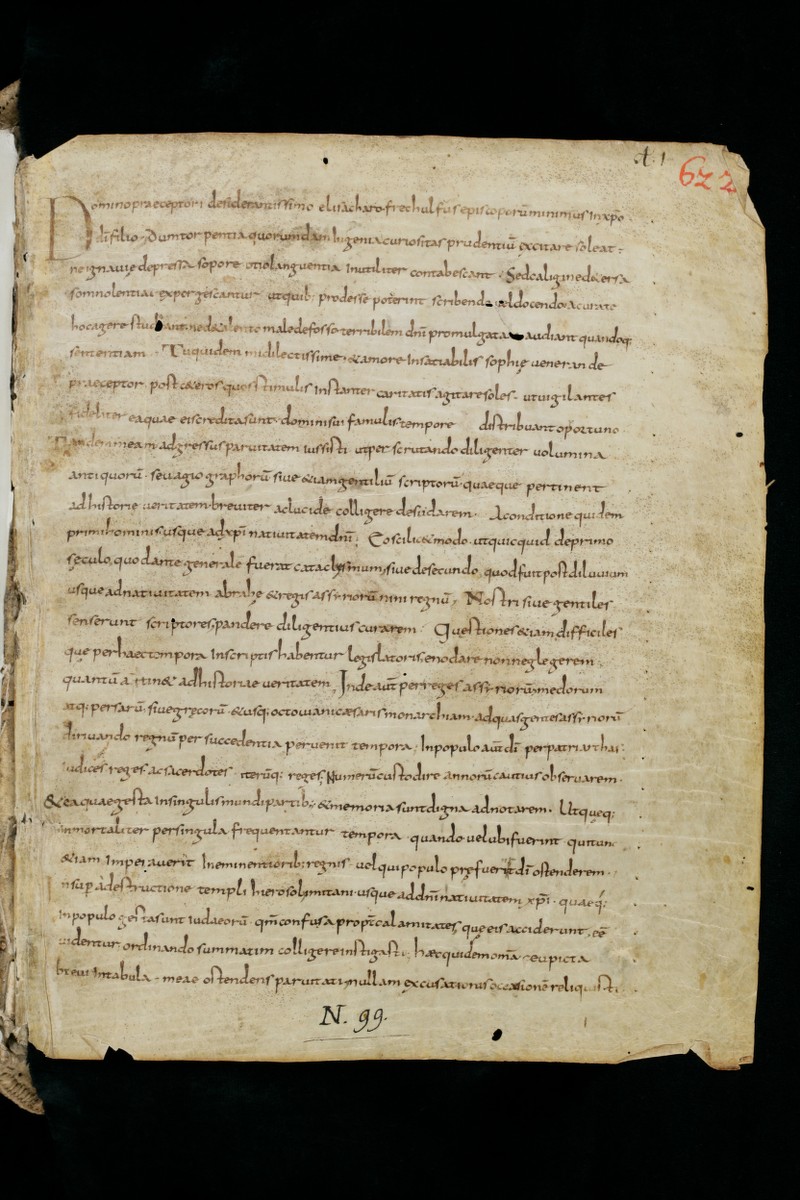 A.1
622
Domino praeceptori desiderantissimo elisacharo frechulfus episcoporū minimus in xp̄o
dī filio. Dum torpentia quorundam ingenia curiositas prudentiū excitare soleat:
ne ignaviae depressa sopore otio languentia inutiliter contabescant. Sed caligine & versa
somnolentiae expergescantur utquib; prodesse poterint scribendo vel docendo accurate
hoc agere studeant. ne de talento male defosso terribilem dn̄i promulgatam audiant quandoq;
sententiam. Tu quidem mi dilectissime & amore insatiabilis sophie venerande
praeceptor post ceteros quos stimulis instanter caritatis agitare soles. ut vigilantes
fideliter ea quae eis credita sunt dominisui famulis tempore distribuant oportuno
Tandem meam adgressus parvitatem iussisti ut perscrutando diligenter volumina
antiquorū seu agiographorū sive & iam gentiliū scriptorū quaeque pertinent
ad historie veritatem breviter ac lucide colligere desudarem. A conditione quidem
primi hominis usque ad xp̄i nativitatem dn̄i; Eo scilic& modo. ut quicquid de primo
sęculo, quod ante generale fuerat cataclysmum, sive de secundo, quod fuit post diluvium
usque ad nativitatem abrahę & regis assyriorū nini regnū, Nostri sive gentiles
senserunt scriptores, pandere diligentius curarem. Questiones & iam difficiles
que per haec tempora in scriptis habentur legislatoris, enodare non neglegerem;
quantū attin& ad historiae veritatem. Inde aūt per reges assyriorū, medorum
atq; persarū, sive grecorū & usq; octoviani caesaris monarchiam. ad quas gentes assyriorū
dirivando regnū per succedentia pervenit tempora; In populo aūt dī per patriarchas
iudices reges ac sacerdotes iterūq; reges, Numerū custodire annorū cautius observarem.
& ea quae gesta in singulis mundi partib; & memoria sunt digna adnotarem. Utque q;
immortaliter per singula frequentantur tempora quando vel ubi fuerint qui tunc
& iam imperaverit in eminentiorib; regnis. vel qui populo prefuerit dī ostenderem.
insup a destructione templi hierosolimitani usque ad dn̄i nativitatem xp̄i. quaeq;
in populo gesta sunt iudaeorū. qm̄ confusa propt̄ calamitates que eis acciderunt, eē
videntur ordinando summatim colligere instigasti; haec quidem omā eu picta
brevi in tabula. meae ostendens parvitati, nullam excusationis occasionē reliquisti.
N. 99.